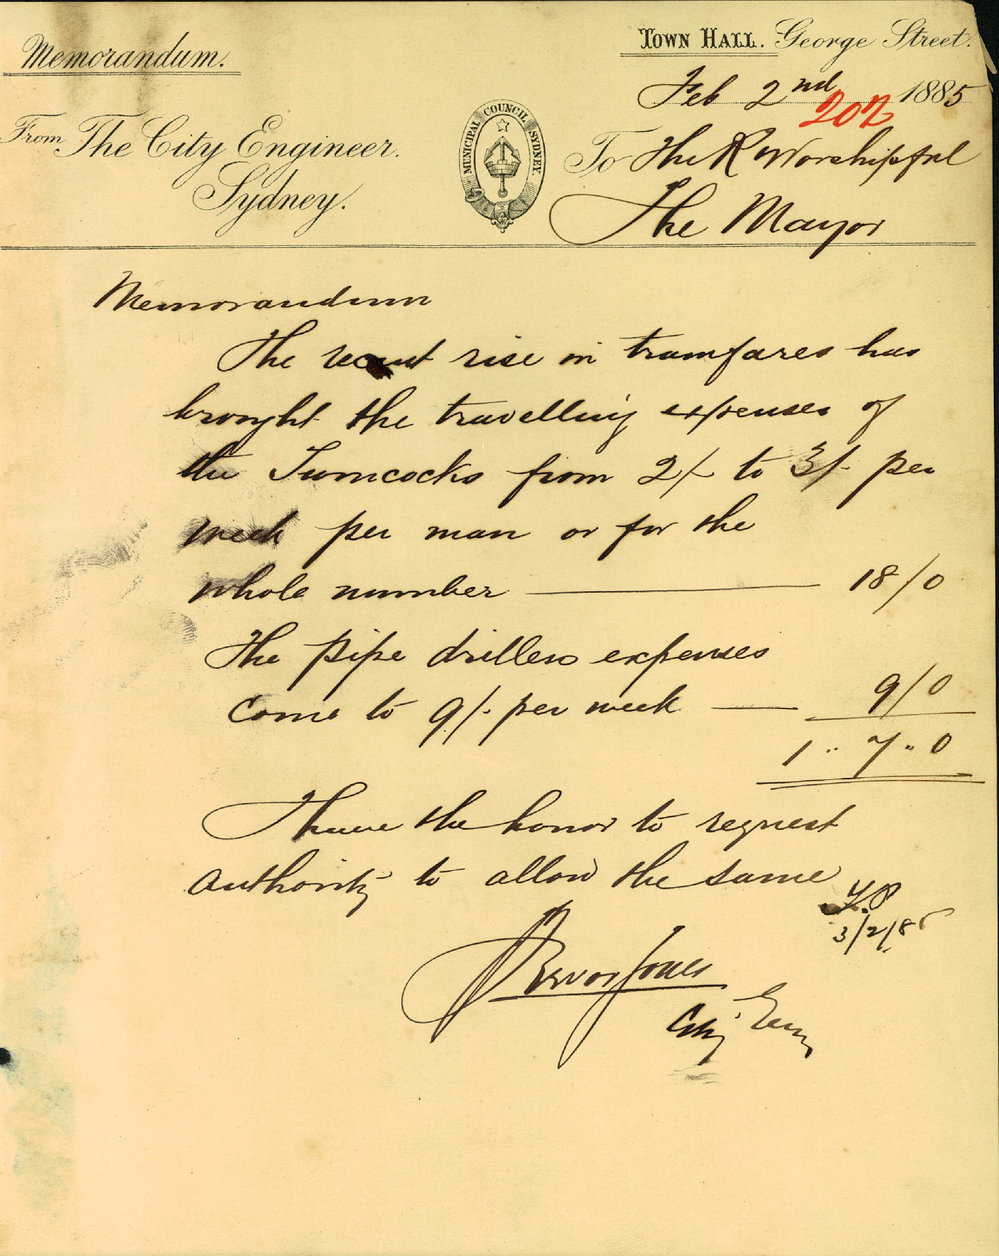 Memorandum.
TOWN HALL. George Street.
Feb 2nd 1885
202
From The City Engineer.
Sydney.
MUNICIPAL COUNCIL SYDNEY.
To The R Worshipful
The Mayor
Memorandum
The recent rise in tramfares has
brought the travelling expenses of
the Turncocks from 2/- to 3/- per
week per man or for the
whole number — 18/0
The pipe drillers expenses
come to 9/- per week — 9/0
1 " 7 " 0
I have the honor to request
authority to allow the same
3/2/85
Trevor Jones
City Engr